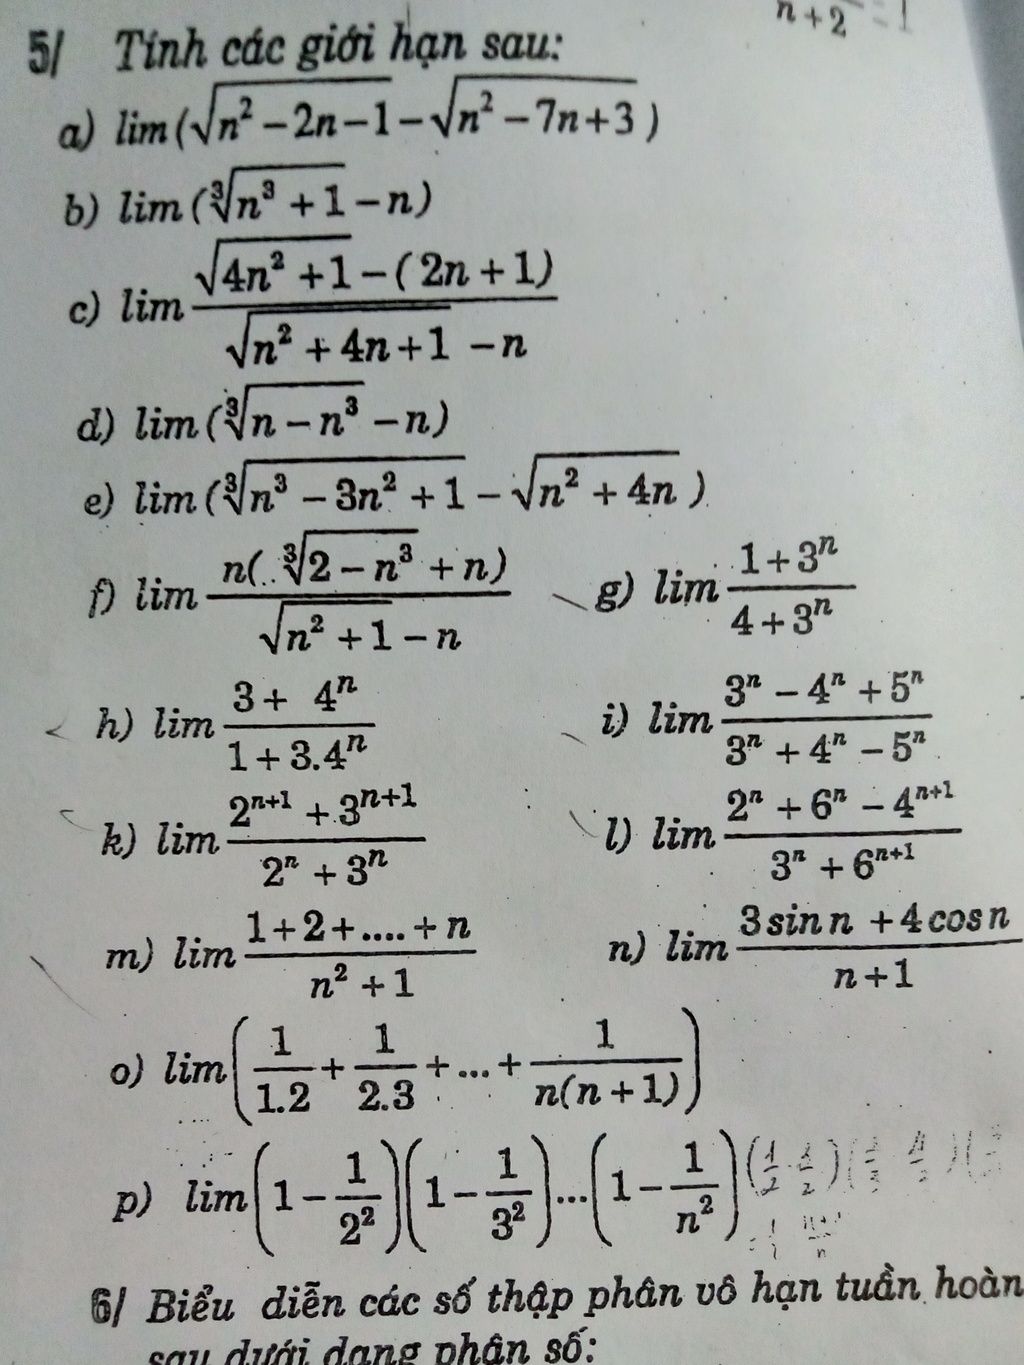 n+2 = 1
5/ Tính các giới hạn sau:
a) lim(√(n² − 2n − 1) − √(n² − 7n + 3))
b) lim(∛(n³ + 1) − n)
c) lim (√(4n² + 1) − (2n + 1))/(√(n² + 4n + 1) − n)
d) lim(∛(n − n³) − n)
e) lim(∛(n³ − 3n² + 1) − √(n² + 4n))
f) lim n(∛(2 − n³) + n)/(√(n² + 1) − n) g) lim (1 + 3ⁿ)/(4 + 3ⁿ)
h) lim (3 + 4ⁿ)/(1 + 3.4ⁿ) i) lim (3ⁿ − 4ⁿ + 5ⁿ)/(3ⁿ + 4ⁿ − 5ⁿ)
k) lim (2ⁿ⁺¹ + 3ⁿ⁺¹)/(2ⁿ + 3ⁿ) l) lim (2ⁿ + 6ⁿ − 4ⁿ⁺¹)/(3ⁿ + 6ⁿ⁺¹)
m) lim (1 + 2 + .... + n)/(n² + 1) n) lim (3 sin n + 4 cos n)/(n + 1)
o) lim(1/1.2 + 1/2.3 + ... + 1/n(n + 1))
p) lim(1 − 1/2²)(1 − 1/3²)...(1 − 1/n²)
6/ Biểu diễn các số thập phân vô hạn tuần hoàn
sau dưới dạng phân số: